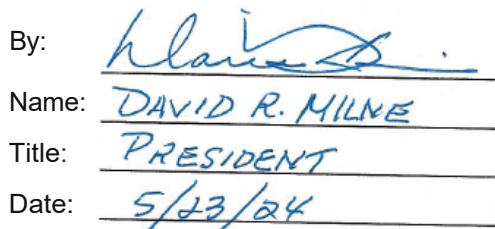 By:
Name: DAVID R. MILNE
Title: PRESIDENT
Date: 5/23/24